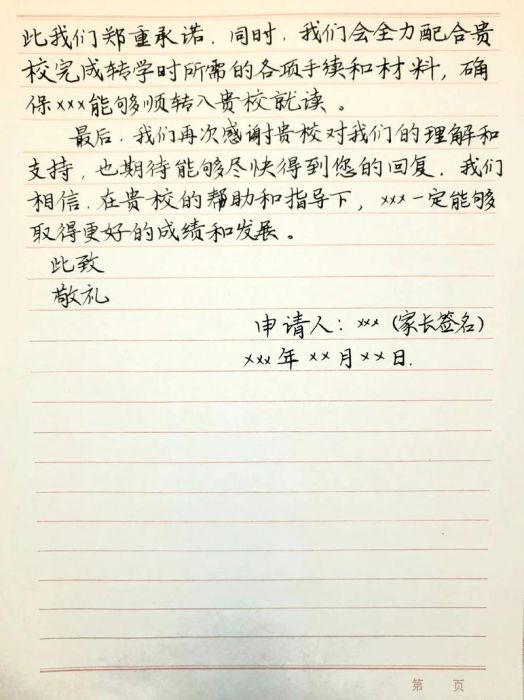 此我们郑重承诺.同时,我们会全力配合贵
校完成转学时所需的各项手续和材料,确
保×××能够顺转入贵校就读。
最后,我们再次感谢贵校对我们的理解和
支持,也期待能够尽快得到您的回复.我们
相信.在贵校的帮助和指导下,×××一定能够
取得更好的成绩和发展。
此致
敬礼
申请人:×××(家长签名)
×××年××月××日.
第 页